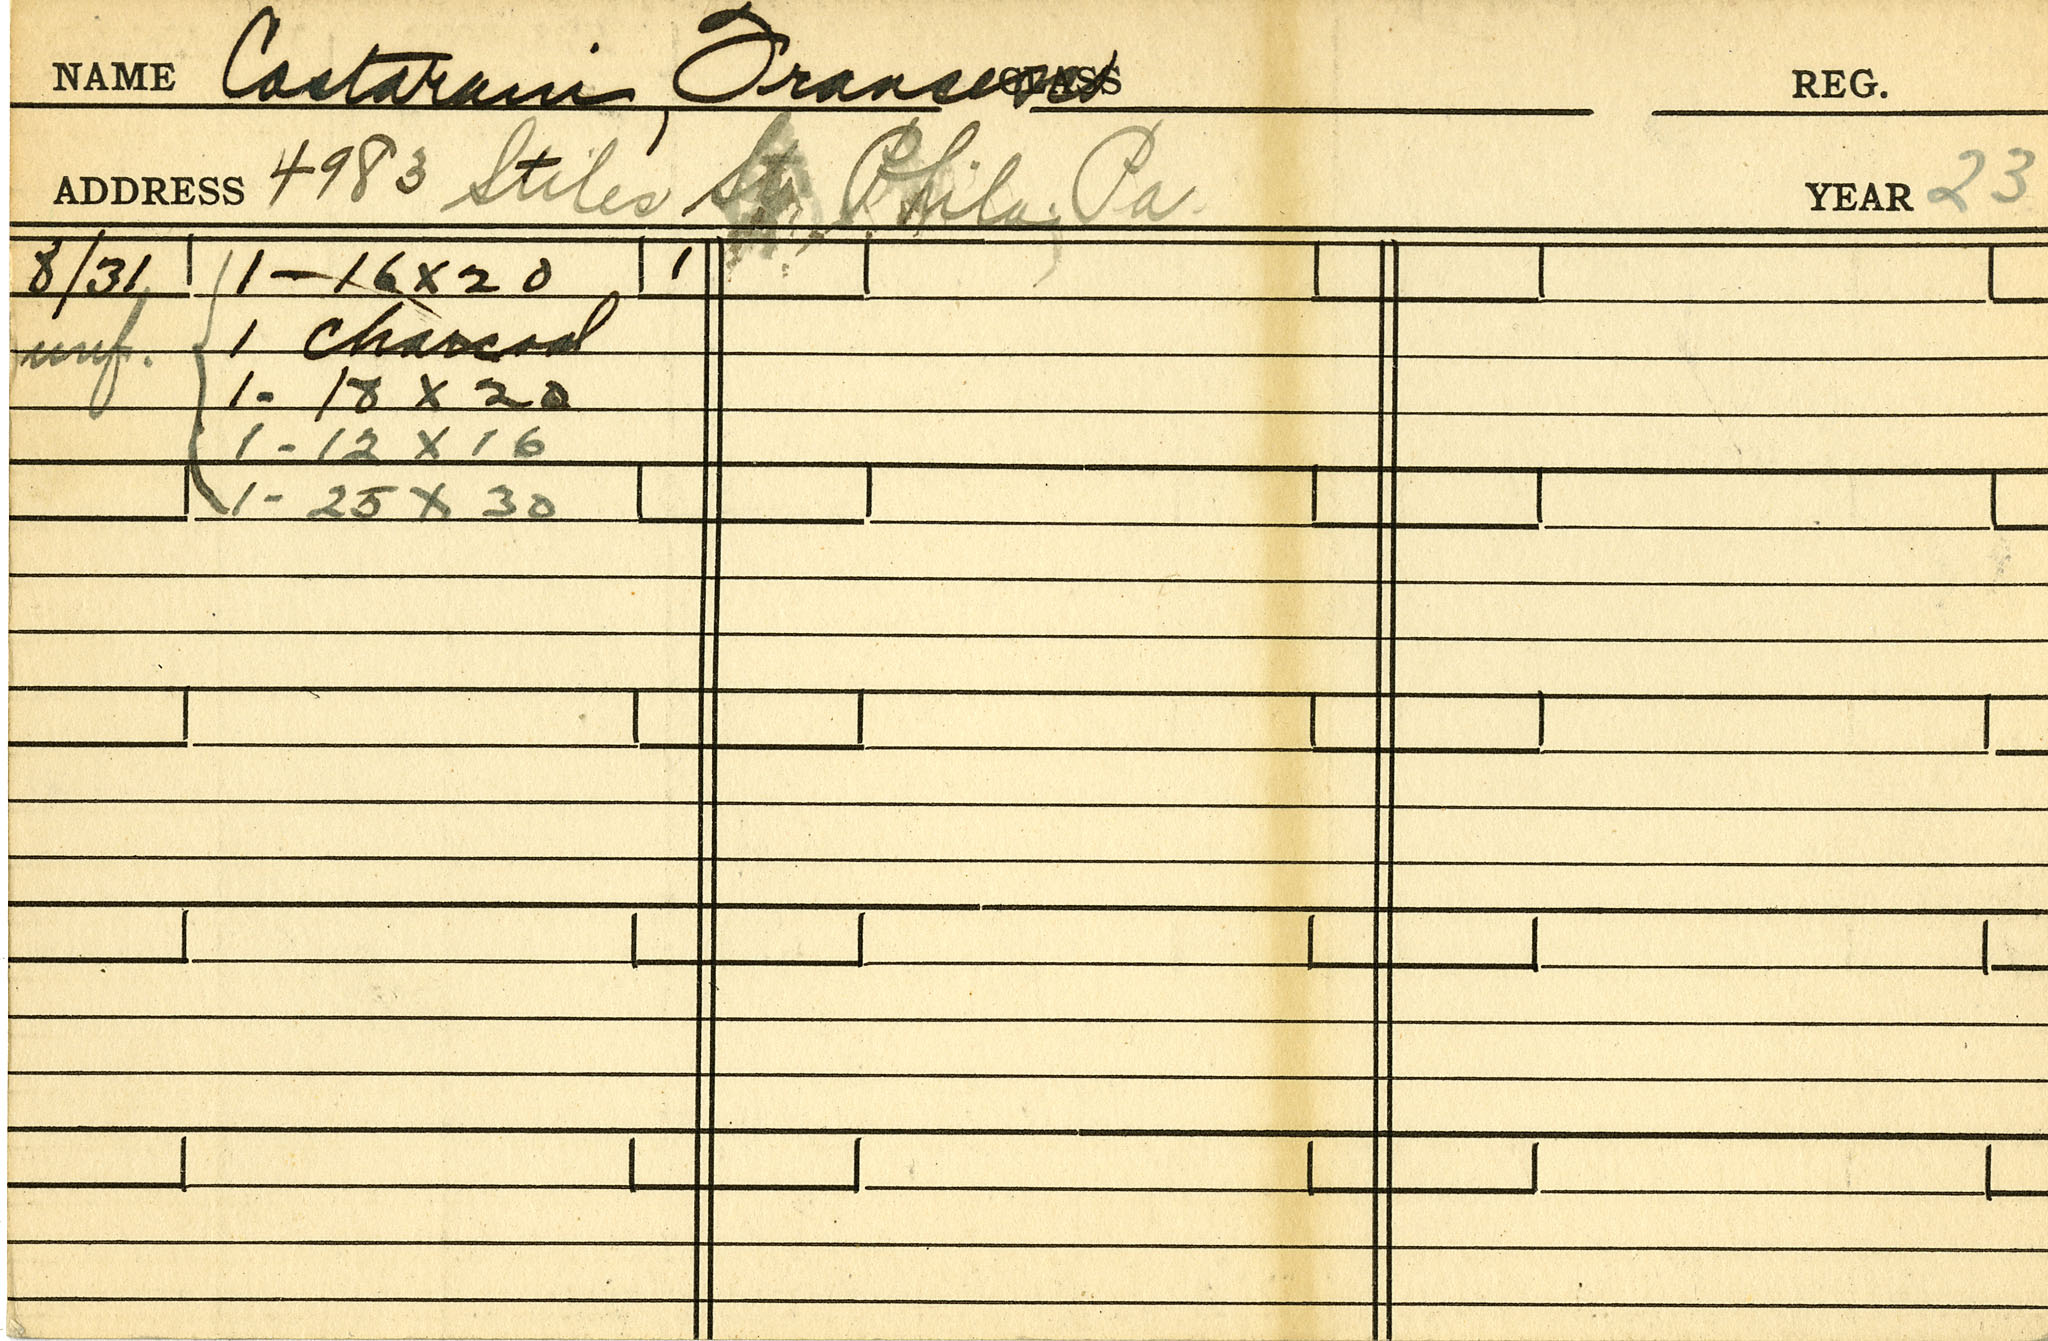 NAME Costarini, CLASS REG.
ADDRESS 4983 Stiles St. Phila, Pa. YEAR 23
8/31 1 - 16 x 20 1
unf. 1 charcoal
1 - 18 x 20
1 - 12 x 16
1 - 25 x 30